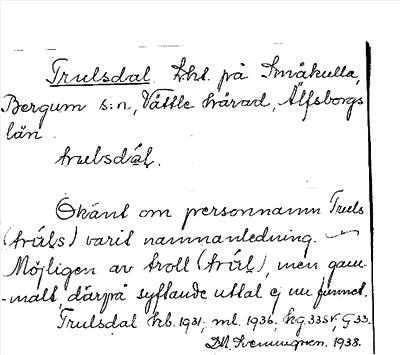 Trulsdal lht. på Småkulla,
Bergum s:n, Vättle härad, Älfsborgs
län.
trulsdál.
Okänt om personnamn Truls
(trúls) varit namnanledning.
Möjligen av troll (trúl), men gam-
-malt, därpå syftande uttal ej nu finnes.
Trulsdal hb. 1931; ml. 1936; hg. 335V; G 33.
1938.